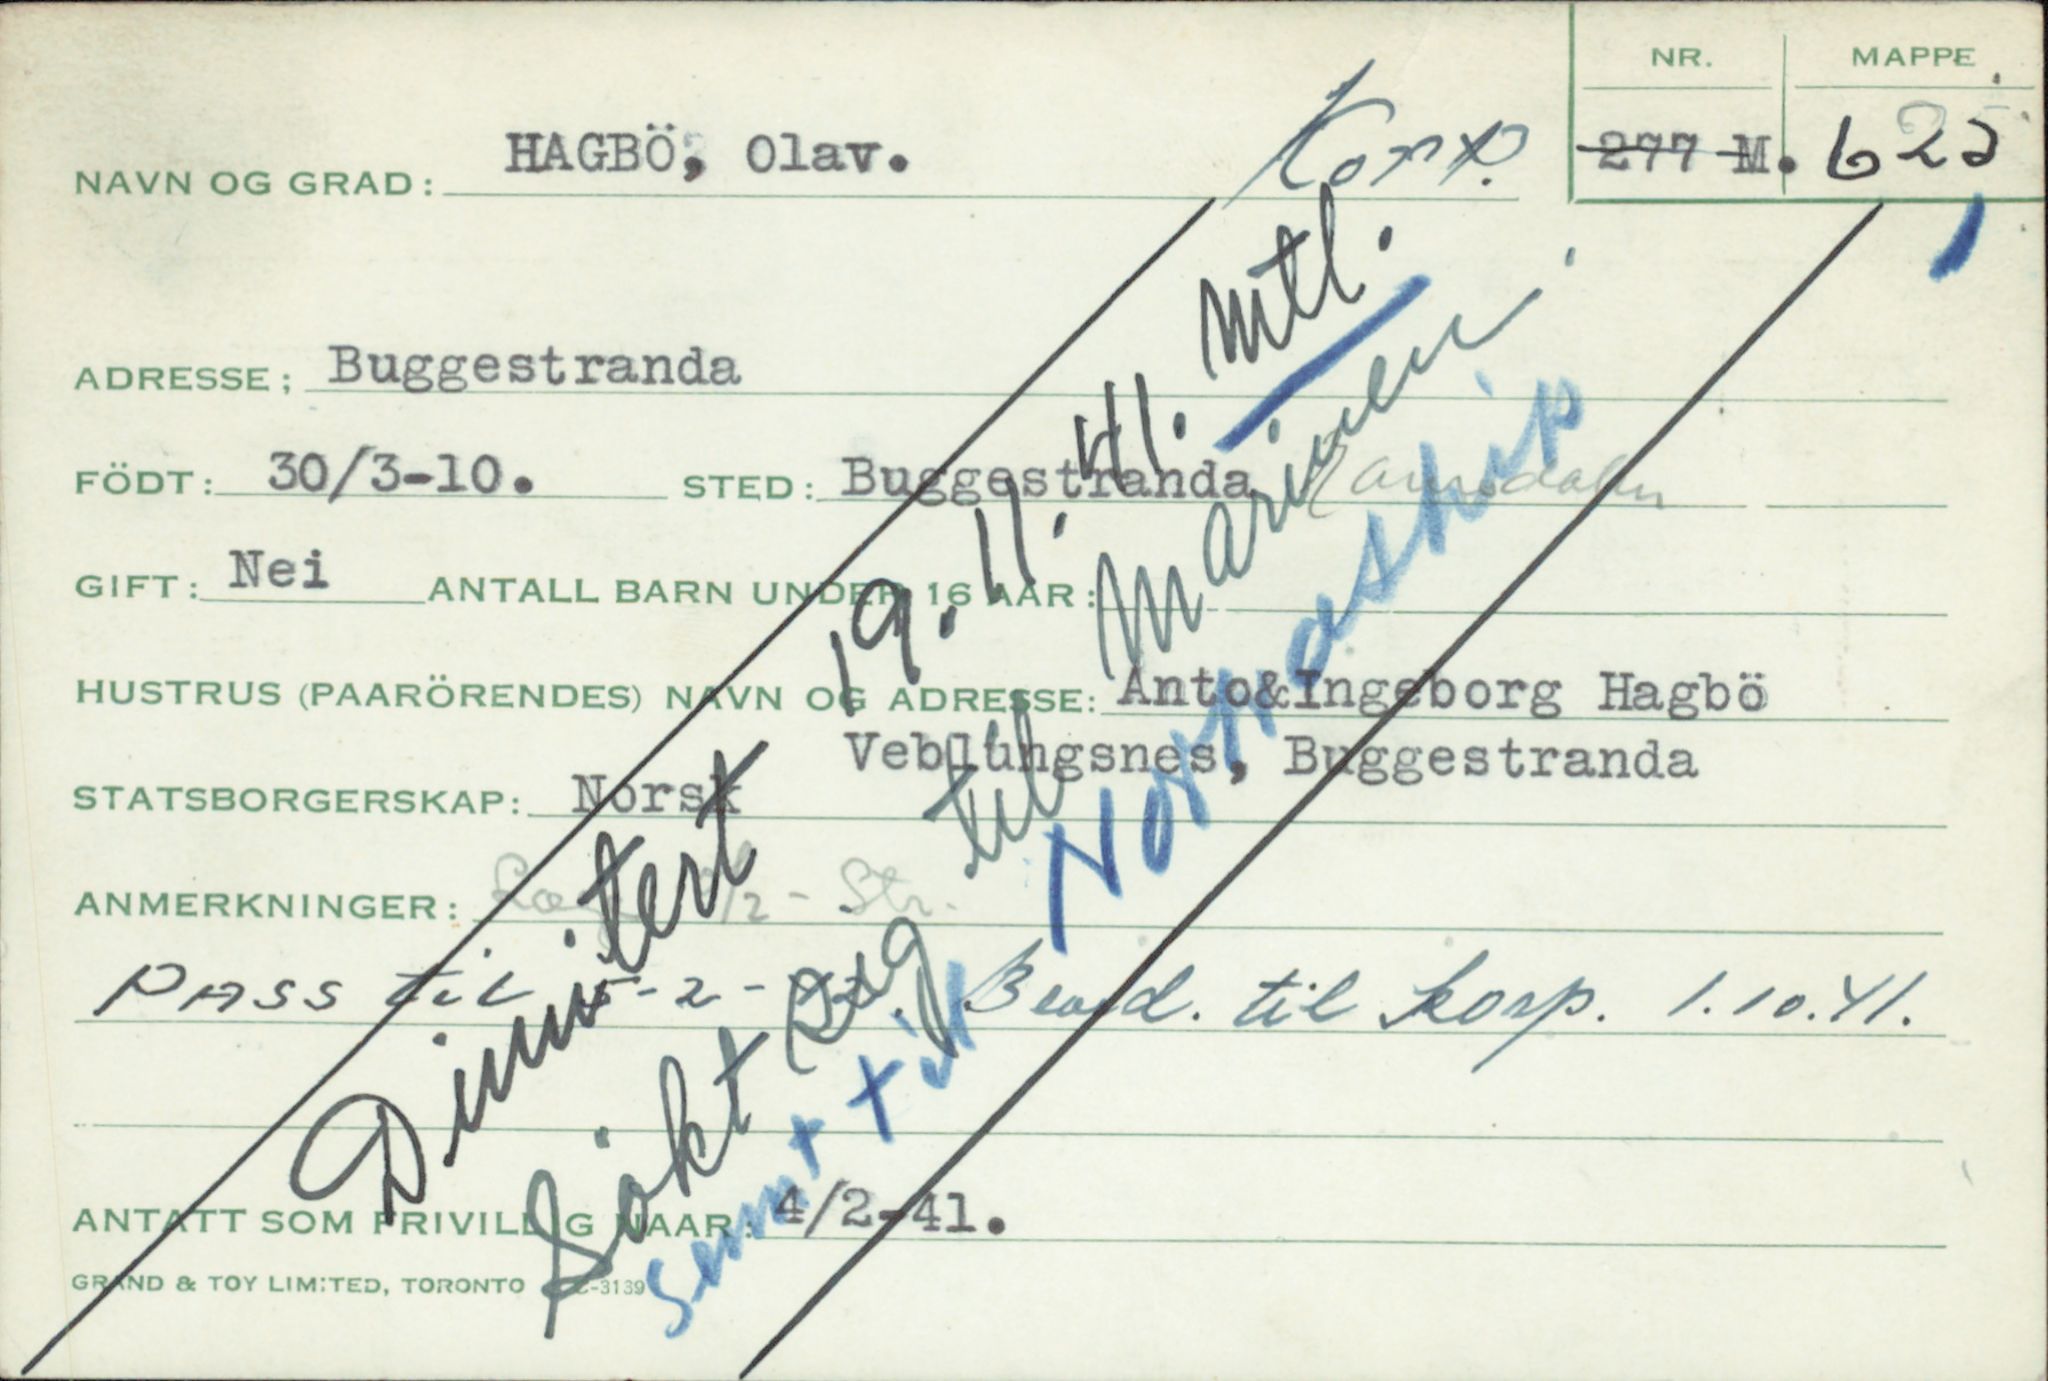 NR. MAPPE
277 M. 625
NAVN OG GRAD: HAGBÖ, Olav. Korp.
ADRESSE; Buggestranda
FÖDT: 30/3-10. STED: Buggestranda Raumsdalen
GIFT: Nei ANTALL BARN UNDER 16 AAR:
HUSTRUS (PAARÖRENDES) NAVN OG ADRESSE: Anto&Ingeborg Hagbö
Veblungsnes, Buggestranda
STATSBORGERSKAP: Norsk
ANMERKNINGER: /2 - Str.
PASS til 5-2-42. Beord. til korp. 1.10.41.
ANTATT SOM FRIVILLIG NAAR: 4/2-41.
GRAND & TOY LIMITED, TORONTO C-3139
Dimitert 19.11.41. Mtl.
Sökt seg til Marinen.
Sennt til Nortraship